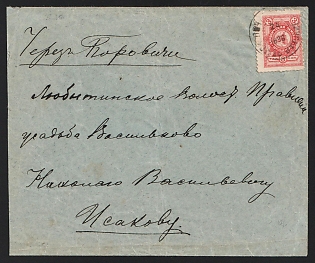 Черезъ Боровичи
Любытинское Волост. Правление
усадьба Васильково
Николаю Васильевичу
Исакову.